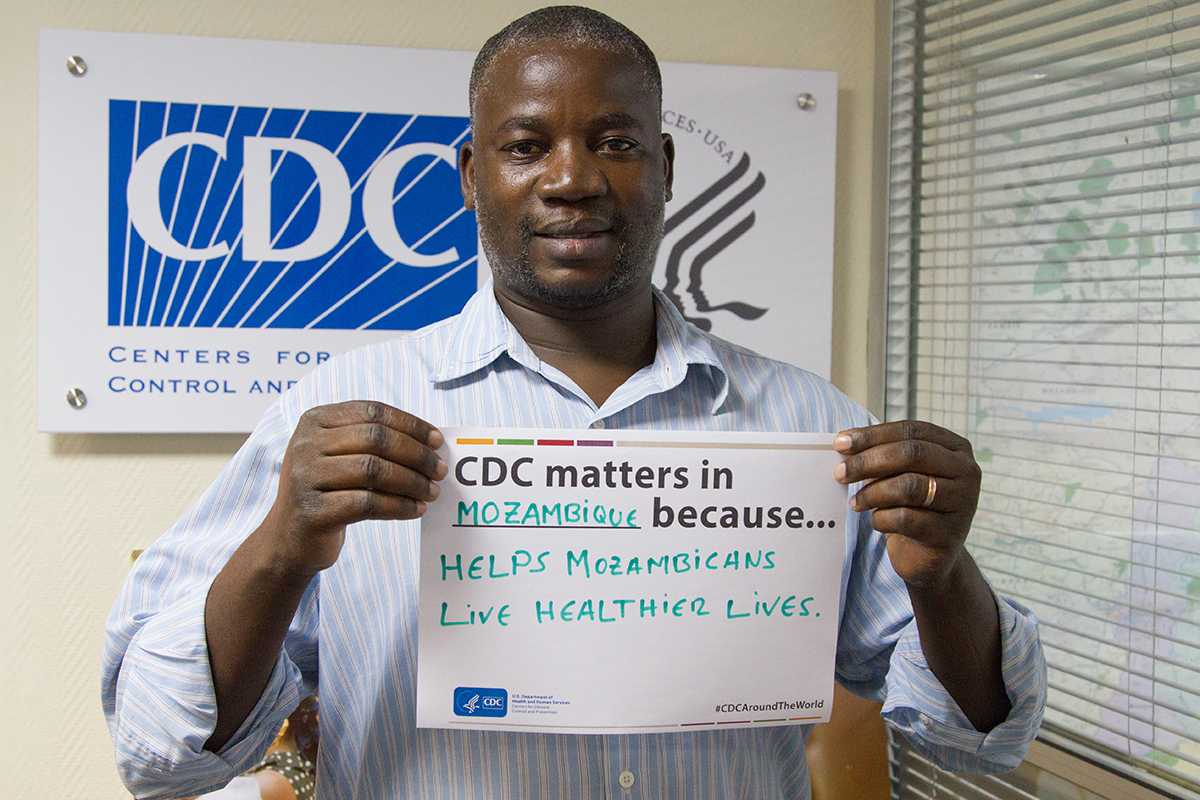 CDC
CENTERS FOR
CONTROL AND
CES · USA
CDC matters in
MOZAMBIQUE because...
HELPS MOZAMBICANS
LIVE HEALTHIER LIVES.
CDC
U.S. Department of
Health and Human Services
Centers for Disease
Control and Prevention
#CDCAroundTheWorld